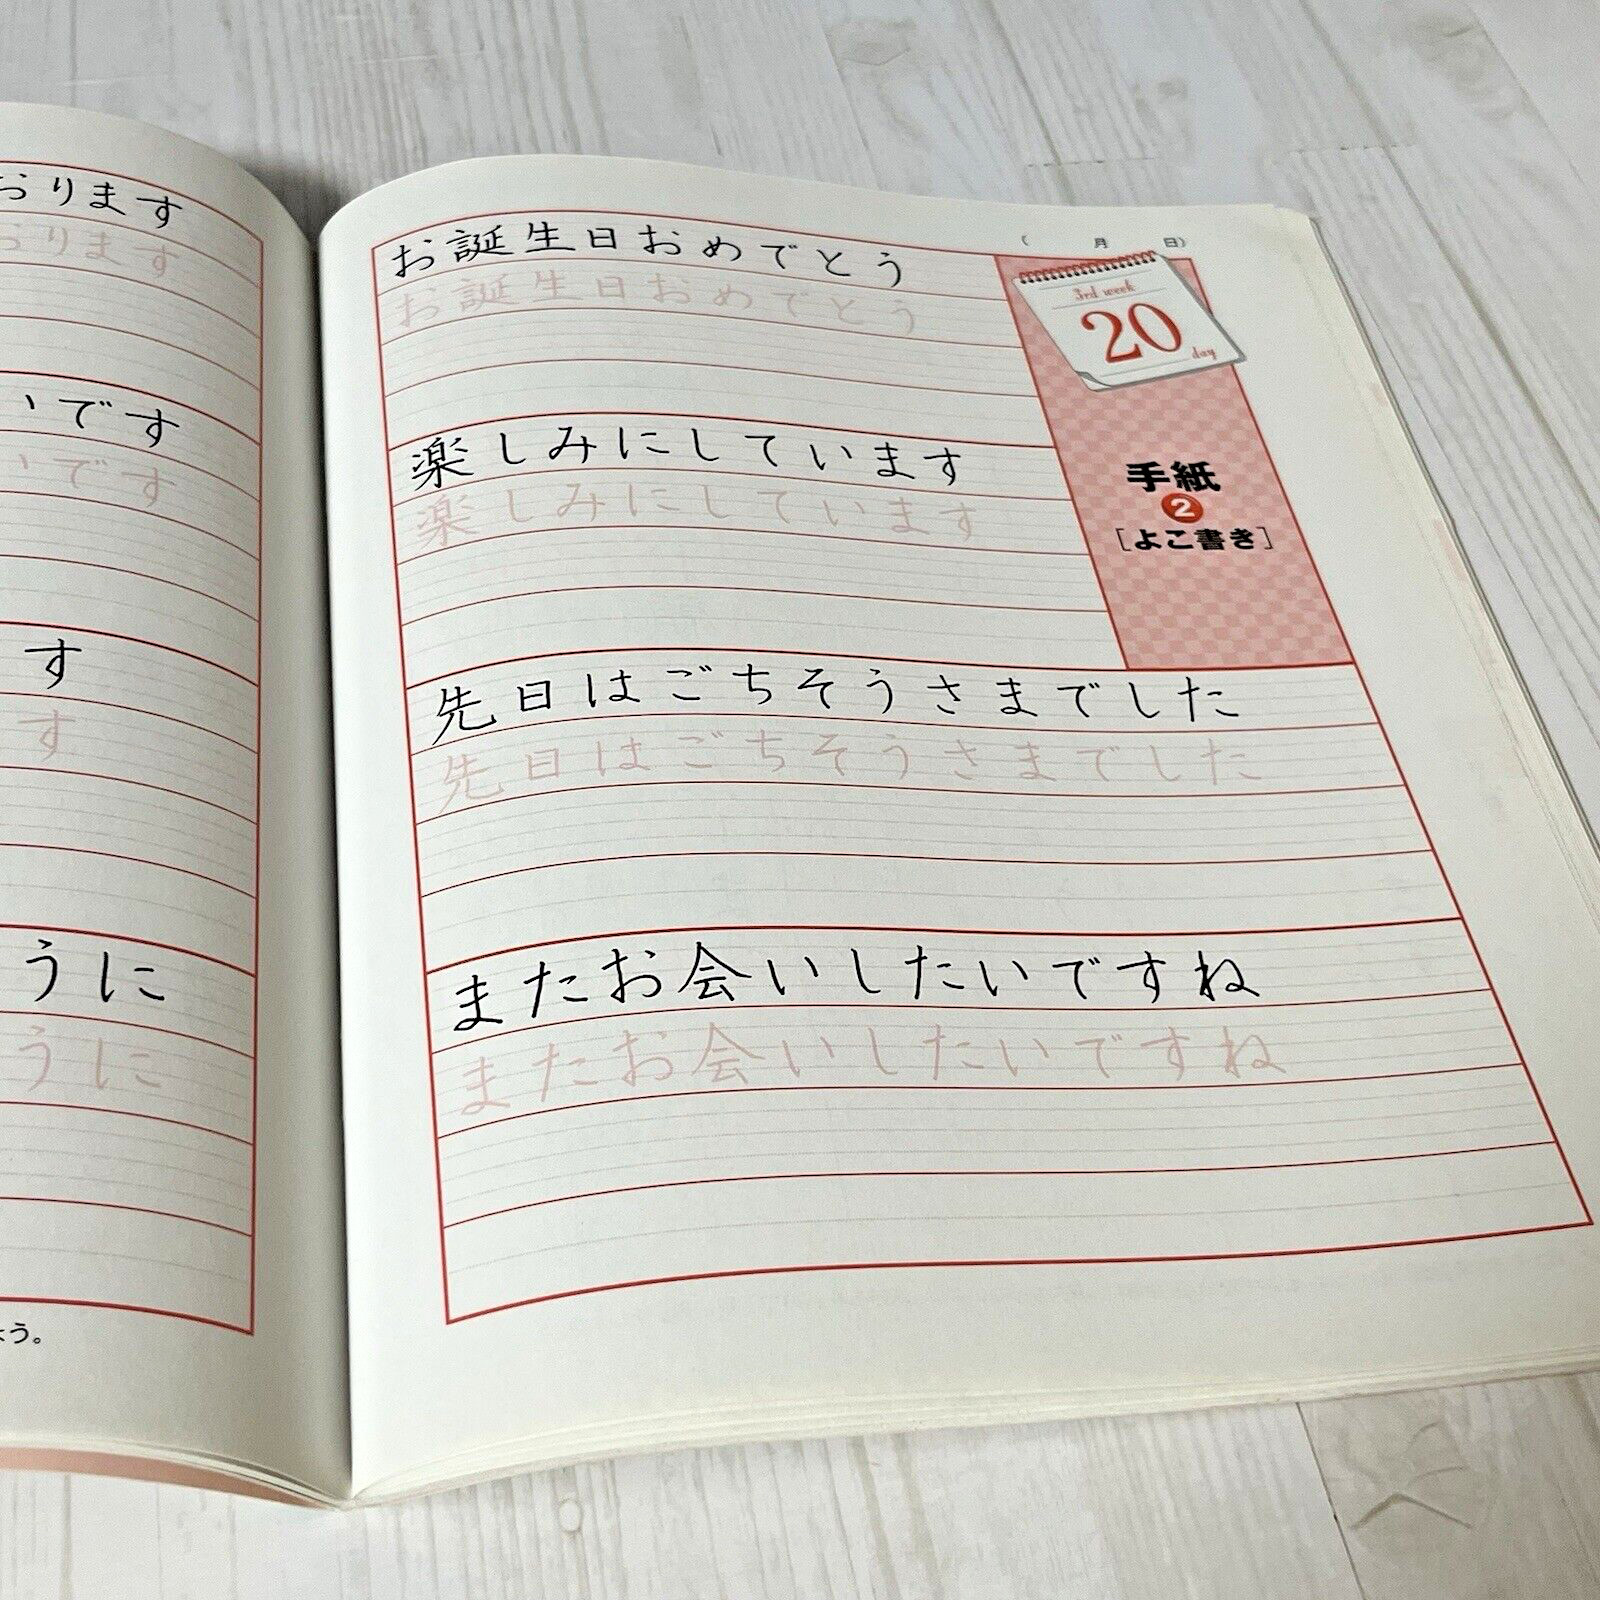 おります
おります
いです
いです
す
す
うに
うに
よう。
( 月 日)
3rd week
20
day
手紙
2
[よこ書き]
お誕生日おめでとう
お誕生日おめでとう
楽しみにしています
楽しみにしています
先日はごちそうさまでした
先日はごちそうさまでした
またお会いしたいですね
またお会いしたいですね